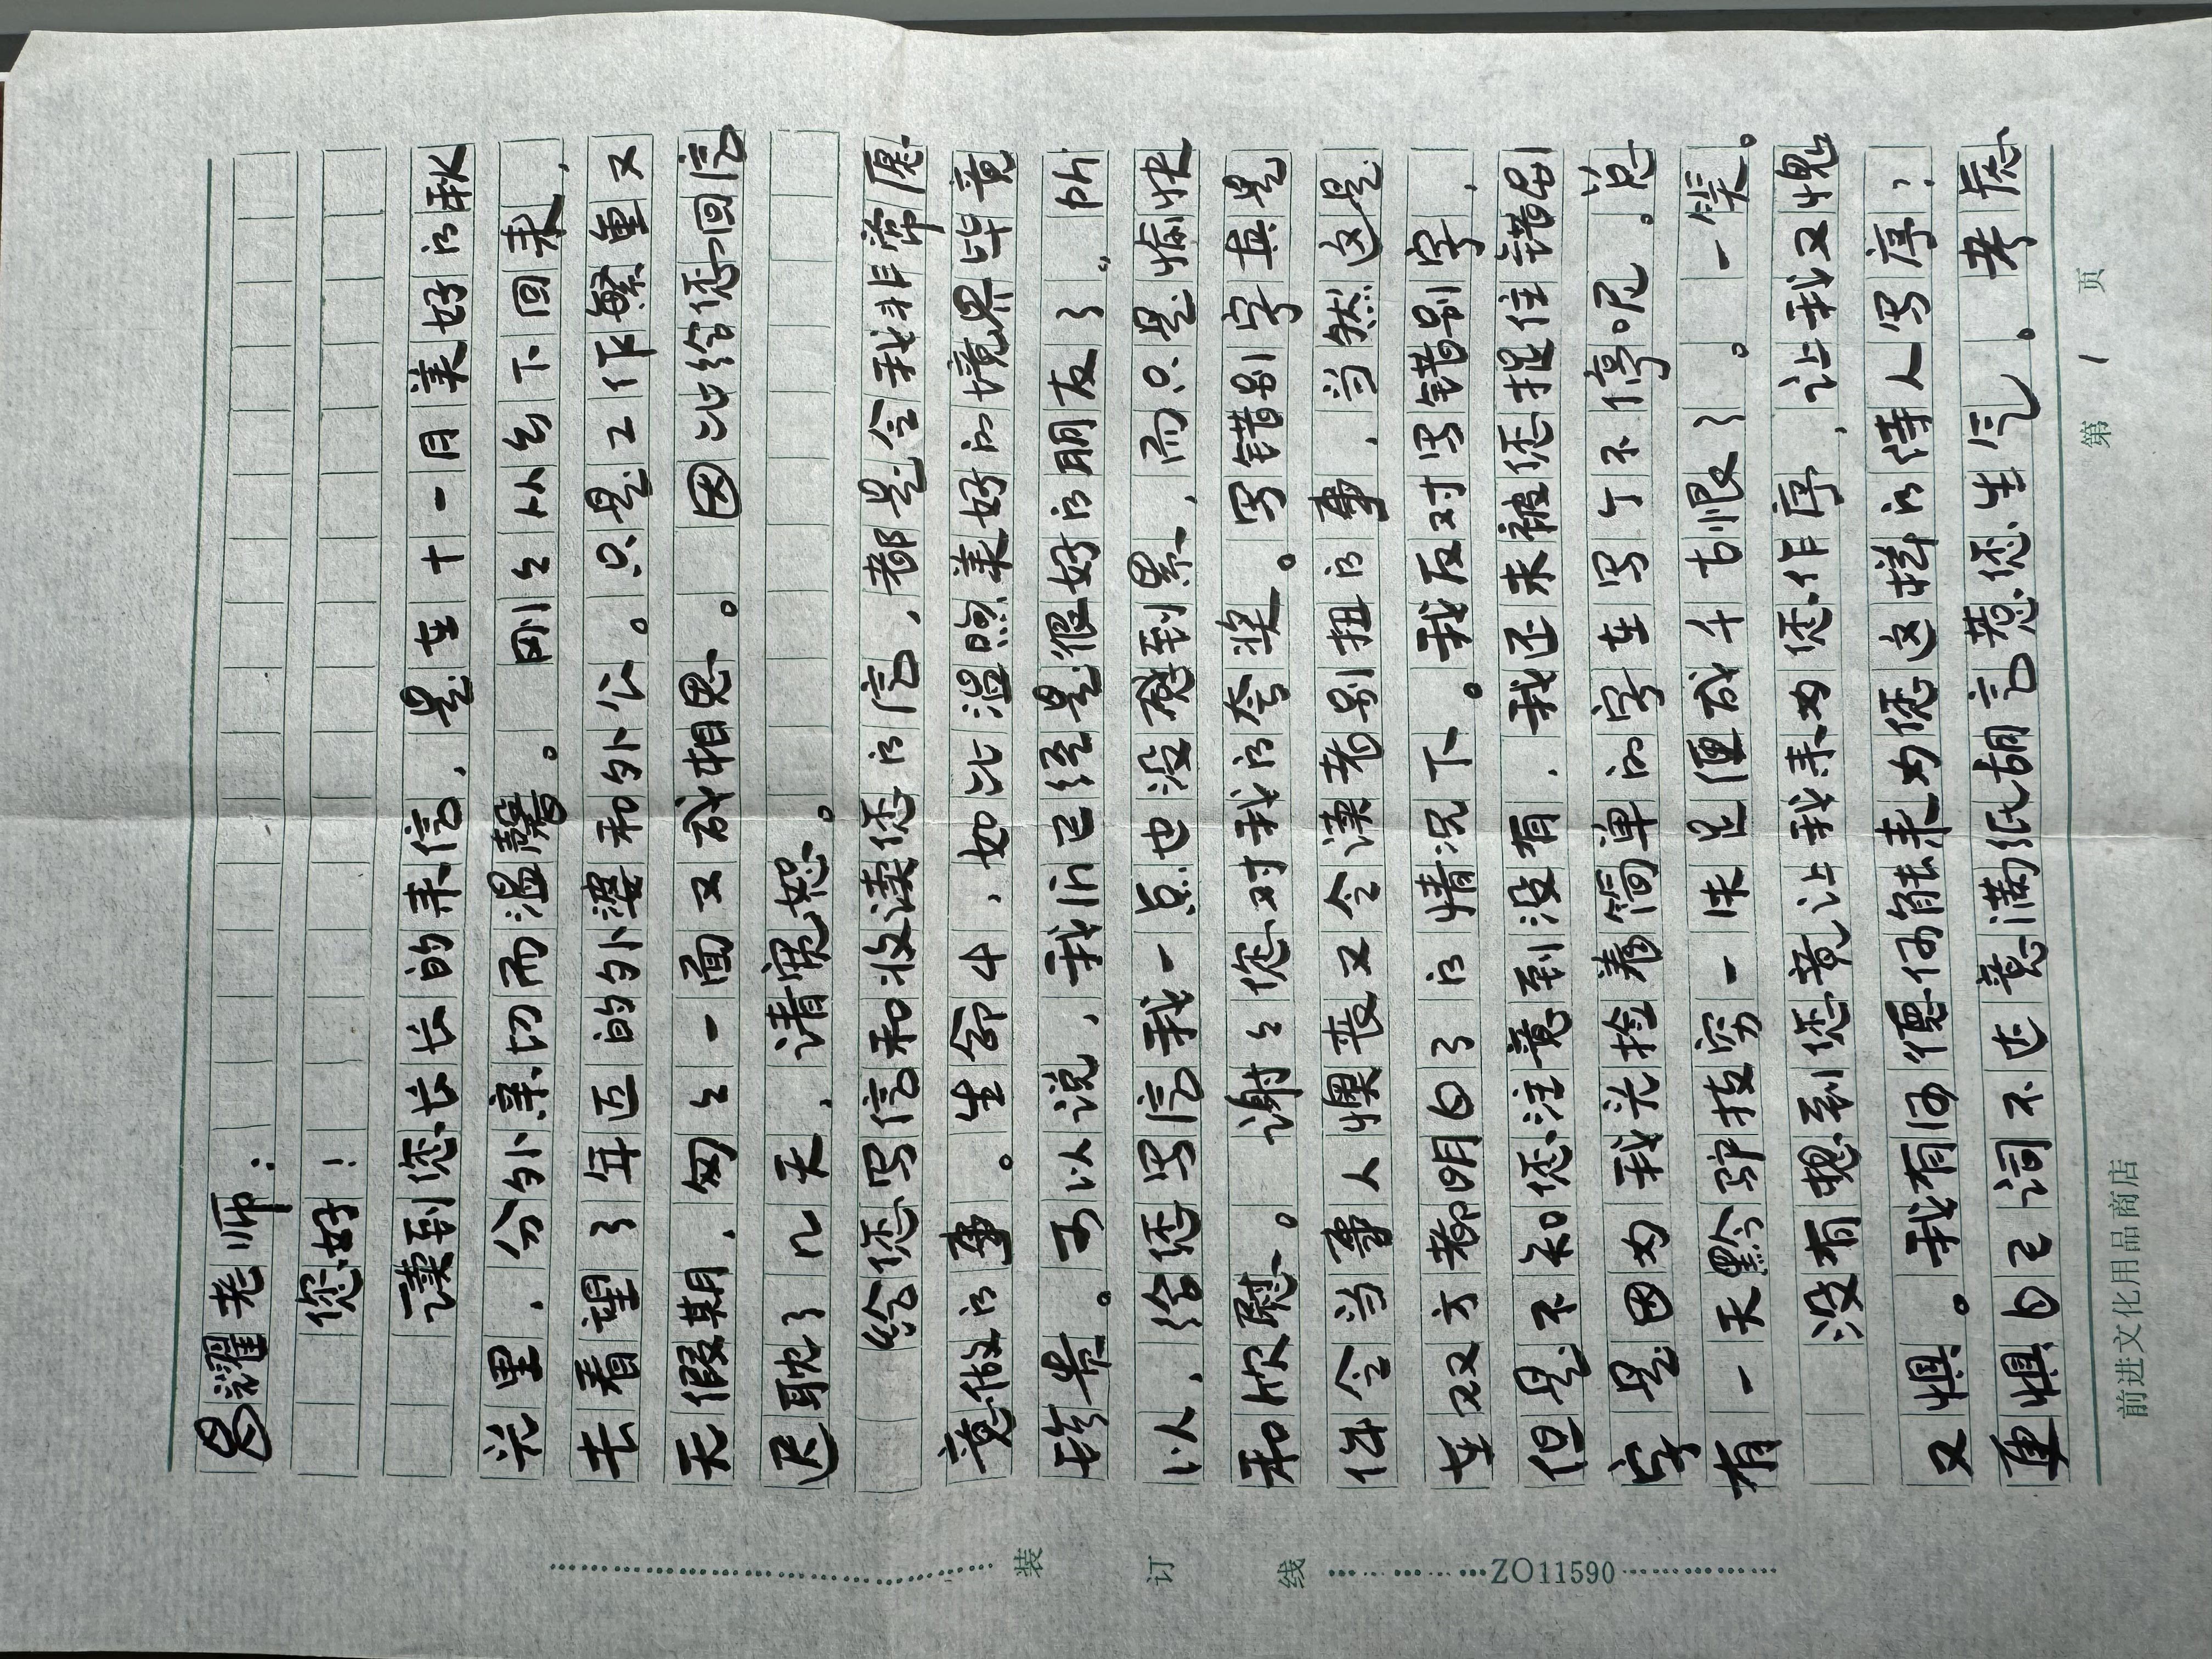 昌耀老师：
您好！
读到您长长的来信，是在十一月美好的秋
光里，分外亲切而温馨。刚刚从乡下回来，
去看望了年迈的外婆和外公。只是工作繁重又
无假期，匆匆一面又成相思。因此给您回信
迟耽了几天，请宽恕。
给您写信和收读您的信，都是令我非常愿
意做的事。生命中，如此温煦美好的境界毕竟
珍贵。可以说，我们已经是很好的朋友了。所
以，给您写信我一点也没感到累，而只是愉快
和欣慰。谢谢您对我的夸奖。写错别字真是
件令当事人懊丧又令读者别扭的事，当然这是
在双方都明白了的情况下。我反对写错别字，
但是不知您注意到没有，我还未被您捉住错别
字是因为我光捡着简单的字在写个不停呢。总
有一天黔驴技穷一失足便成千古恨了。一笑。
没有想到您竟让我来为您作序，让我又愧
又惧。我有何德何能来为您这样的诗人写序？
更惧自己词不达意满纸胡言惹您生气。考虑
装订线
ZO11590
前进文化用品商店
第1页